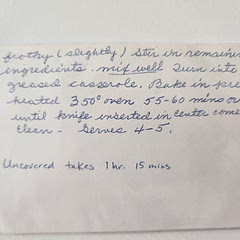 frothy (slightly) stir in remainin
ingredients. mix well turn into
greased casserole. Bake in pre
heated 350° oven 55-60 mins or
until knife inserted in center come
clean - Serves 4-5.
Uncovered takes 1 hr. 15 mins